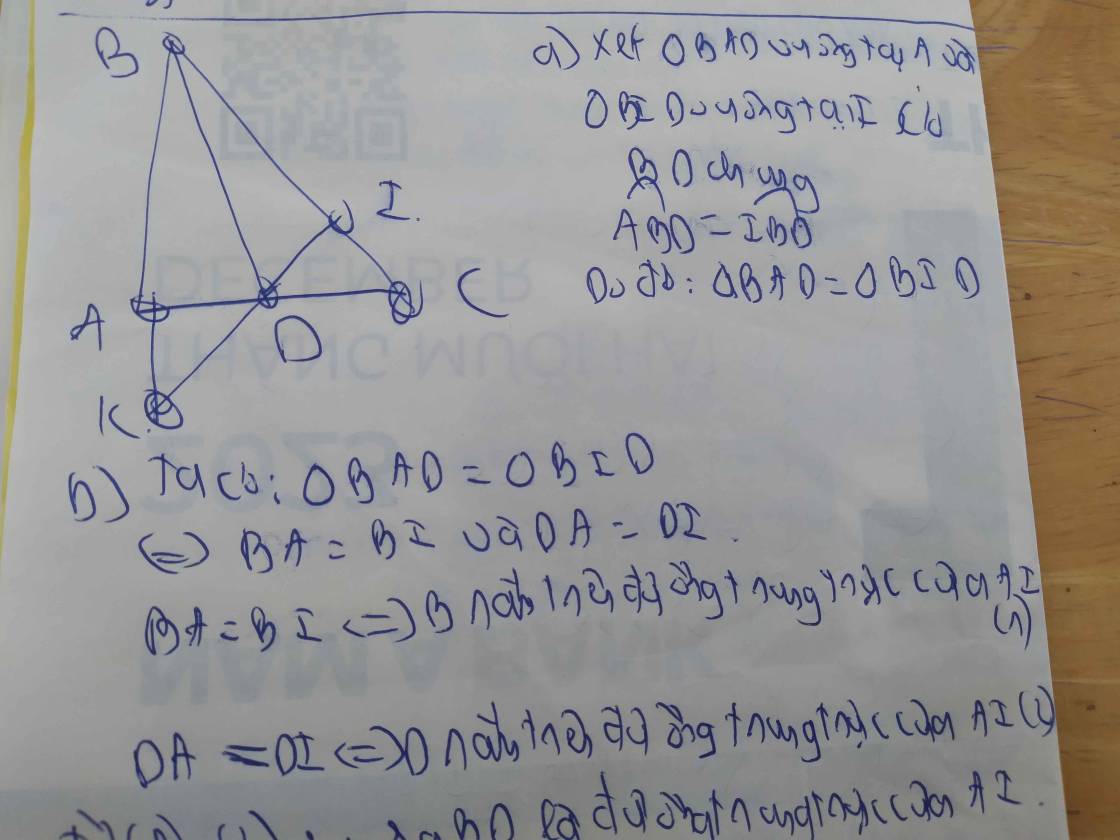 B
I.
A
D
C
K
a) Xét ΔBAD vuông tại A và
ΔBID vuông tại I có
BD chung
ABD = IBD
Do đó: ΔBAD = ΔBID
b) Ta có: ΔBAD = ΔBID
(=) BA = BI và DA = DI.
BA = BI <=> B nằm trên đường trung trực của AI
(1)
DA = DI <=> D nằm trên đường trung trực của AI (2)
BD là đường trung trực của AI.
DECEMBER
THÁNG MƯỜI HAI
2025
NAM A BANK